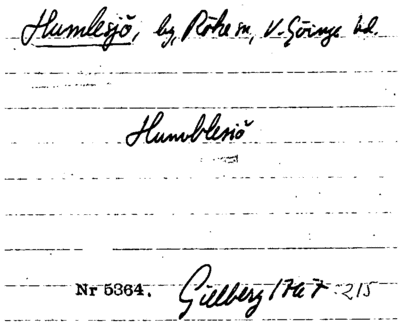 Humlesjö, by, Röke sn, V. Göinge hd.
Humblesiö
Nr 5364. Gillberg 1767 215